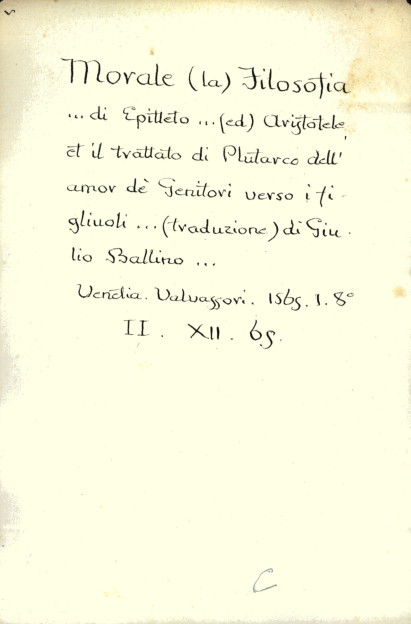 Morale (la) Filosofia
... di Epitteto ... (ed) Aristotele,
et il trattato di Plutarco dell'
amor dè Genitori verso i fi-
gliuoli ... (traduzione) di Giu-
lio Ballino ...
Venetia. Valvassori. 1565. 1. 8°
II. XII. 65.
C